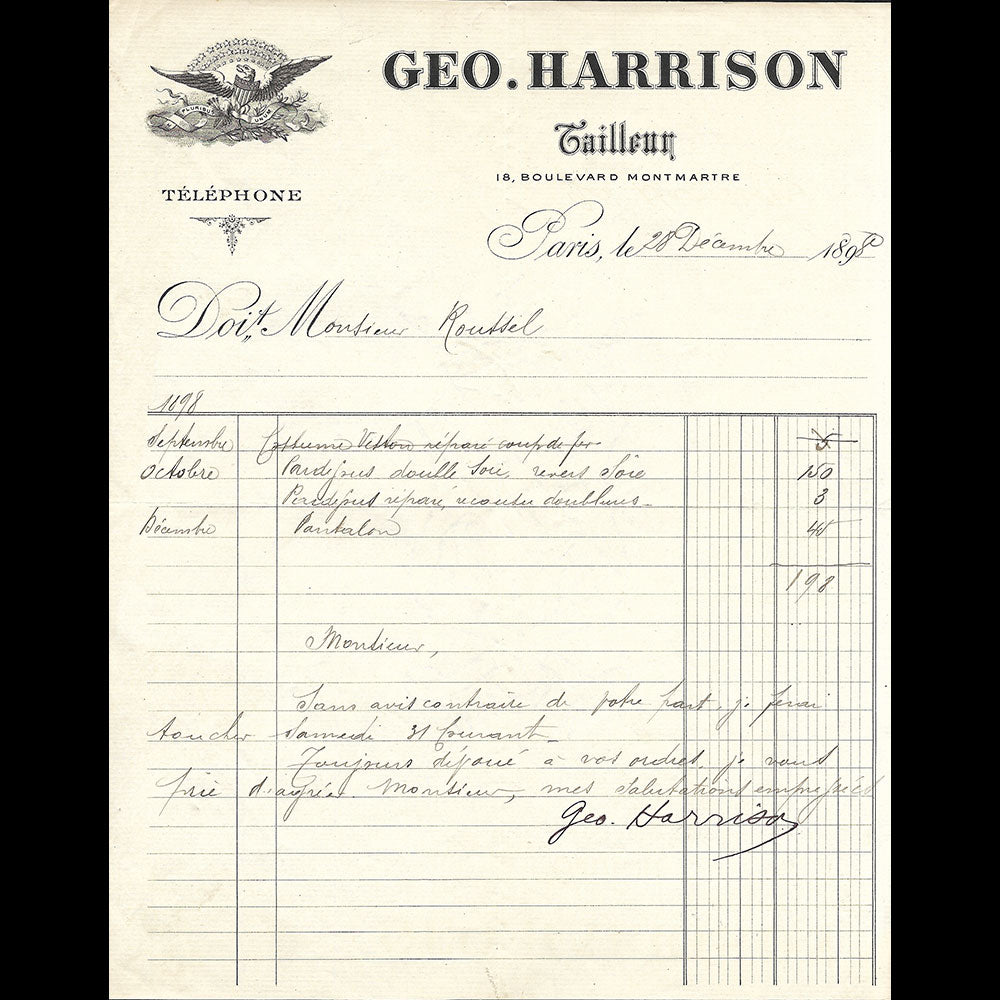 E PLURIBUS UNUM
GEO. HARRISON
Tailleur
18, BOULEVARD MONTMARTRE
TÉLÉPHONE
Paris, le 28 Décembre 1898
Doit Monsieur Roussel
1898
Septembre Costume Veston réparé coup de fer 5
Octobre Pardessus double Soie, revers Soie 150
Pardessus réparé, recousu doublures 3
Décembre Pantalon 45
198
Monsieur,
Sans avis contraire de votre part, je ferai
toucher Samedi 31 Courant
Toujours dévoué à vos ordres, je vous
prie d'agréer Monsieur, mes salutations empressées
Geo. Harrison